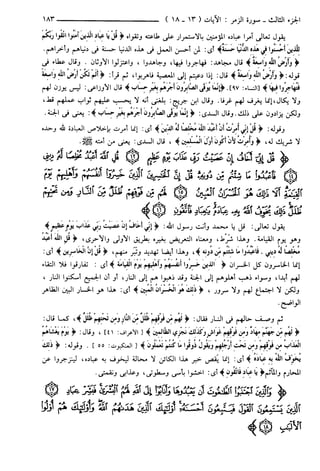 الجزء الثالث - سورة الزمر : الآيات ( ١٣ - ١٨ ) ١٨٣
يقول تعالى آمرا عباده المؤمنين بالاستمرار على طاعته وتقواه ﴿ قُلْ يَا عِبَادِ الَّذِينَ آمَنُوا اتَّقُوا رَبَّكُمْ
لِلَّذِينَ أَحْسَنُوا فِي هَذِهِ الدُّنْيَا حَسَنَةٌ ﴾ أي : لمن أحسن العمل في هذه الدنيا حسنة في دنياهم وأخراهم.
﴿ وَأَرْضُ اللَّهِ وَاسِعَةٌ ﴾ قال مجاهد : فهاجروا فيها، وجاهدوا ، واعتزلوا الأوثان . وقال عطاء في
قوله : ﴿ وَأَرْضُ اللَّهِ وَاسِعَةٌ ﴾ قال : إذا دعيتم إلى المعصية فاهربوا، ثم قرأ : ﴿ أَلَمْ تَكُنْ أَرْضُ اللَّهِ وَاسِعَةً
فَتُهَاجِرُوا فِيهَا ﴾ [النساء : ٩٧]. ﴿ إِنَّمَا يُوَفَّى الصَّابِرُونَ أَجْرَهُم بِغَيْرِ حِسَابٍ ﴾ قال الأوزاعي : ليس يوزن لهم
ولا يكال، إنما يغرف لهم غرفا. وقال ابن جريج : بلغني أنه لا يحسب عليهم ثواب عملهم قط،
ولكن يزادون على ذلك. وقال السدي : ﴿ إِنَّمَا يُوَفَّى الصَّابِرُونَ أَجْرَهُم بِغَيْرِ حِسَابٍ ﴾ : يعني في الجنة.
وقوله : ﴿ قُلْ إِنِّي أُمِرْتُ أَنْ أَعْبُدَ اللَّهَ مُخْلِصًا لَّهُ الدِّينَ ﴾ أي : إنما أمرت بإخلاص العبادة لله وحده
لا شريك له، ﴿ وَأُمِرْتُ لِأَنْ أَكُونَ أَوَّلَ الْمُسْلِمِينَ ﴾ ، قال السدي : يعني من أمته
يقول تعالى : قل يا محمد وأنت رسول الله : ﴿ إِنِّي أَخَافُ إِنْ عَصَيْتُ رَبِّي عَذَابَ يَوْمٍ عَظِيمٍ ﴾
وهو يوم القيامة. وهذا شرط، ومعناه التعريض بغيره بطريق الأولى والأحرى، ﴿ قُلِ اللَّهَ أَعْبُدُ
مُخْلِصًا لَّهُ دِينِي . فَاعْبُدُوا مَا شِئْتُم مِّن دُونِهِ ﴾ وهذا أيضا تهديد وتبرّ منهم، ﴿ قُلْ إِنَّ الْخَاسِرِينَ ﴾ أي :
إنما الخاسرون كل الخسران ﴿ الَّذِينَ خَسِرُوا أَنفُسَهُمْ وَأَهْلِيهِمْ يَوْمَ الْقِيَامَةِ ﴾ أي : تفارقوا فلا التقاء
لهم أبدا، وسواء ذهب أهلوهم إلى الجنة وقد ذهبوا هم إلى النار، أو أن الجميع أسكنوا النار ،
ولكن لا اجتماع لهم ولا سرور ، ﴿ ذَلِكَ هُوَ الْخُسْرَانُ الْمُبِينُ ﴾ أي : هذا هو الخسار البين الظاهر
الواضح.
ثم وصف حالهم في النار فقال : ﴿ لَهُم مِّن فَوْقِهِمْ ظُلَلٌ مِّنَ النَّارِ وَمِن تَحْتِهِمْ ظُلَلٌ ﴾ ، كما قال :
﴿ لَهُم مِّن جَهَنَّمَ مِهَادٌ وَمِن فَوْقِهِمْ غَوَاشٍ وَكَذَلِكَ نَجْزِي الظَّالِمِينَ ﴾ [الأعراف : ٤١] ، وقال : ﴿ يَوْمَ يَغْشَاهُمُ
الْعَذَابُ مِن فَوْقِهِمْ وَمِن تَحْتِ أَرْجُلِهِمْ وَيَقُولُ ذُوقُوا مَا كُنتُمْ تَعْمَلُونَ ﴾ [العنكبوت : ٥٥] . وقوله : ﴿ ذَلِكَ
يُخَوِّفُ اللَّهُ بِهِ عِبَادَهُ ﴾ أي : إنما يقص خبر هذا الكائن لا محالة ليخوف به عباده، لينزجروا عن
المحارم والمآثم ﴿ يَا عِبَادِ فَاتَّقُونِ ﴾ أي : اخشوا بأسي وسطوتي، وعذابي ونقمتي.